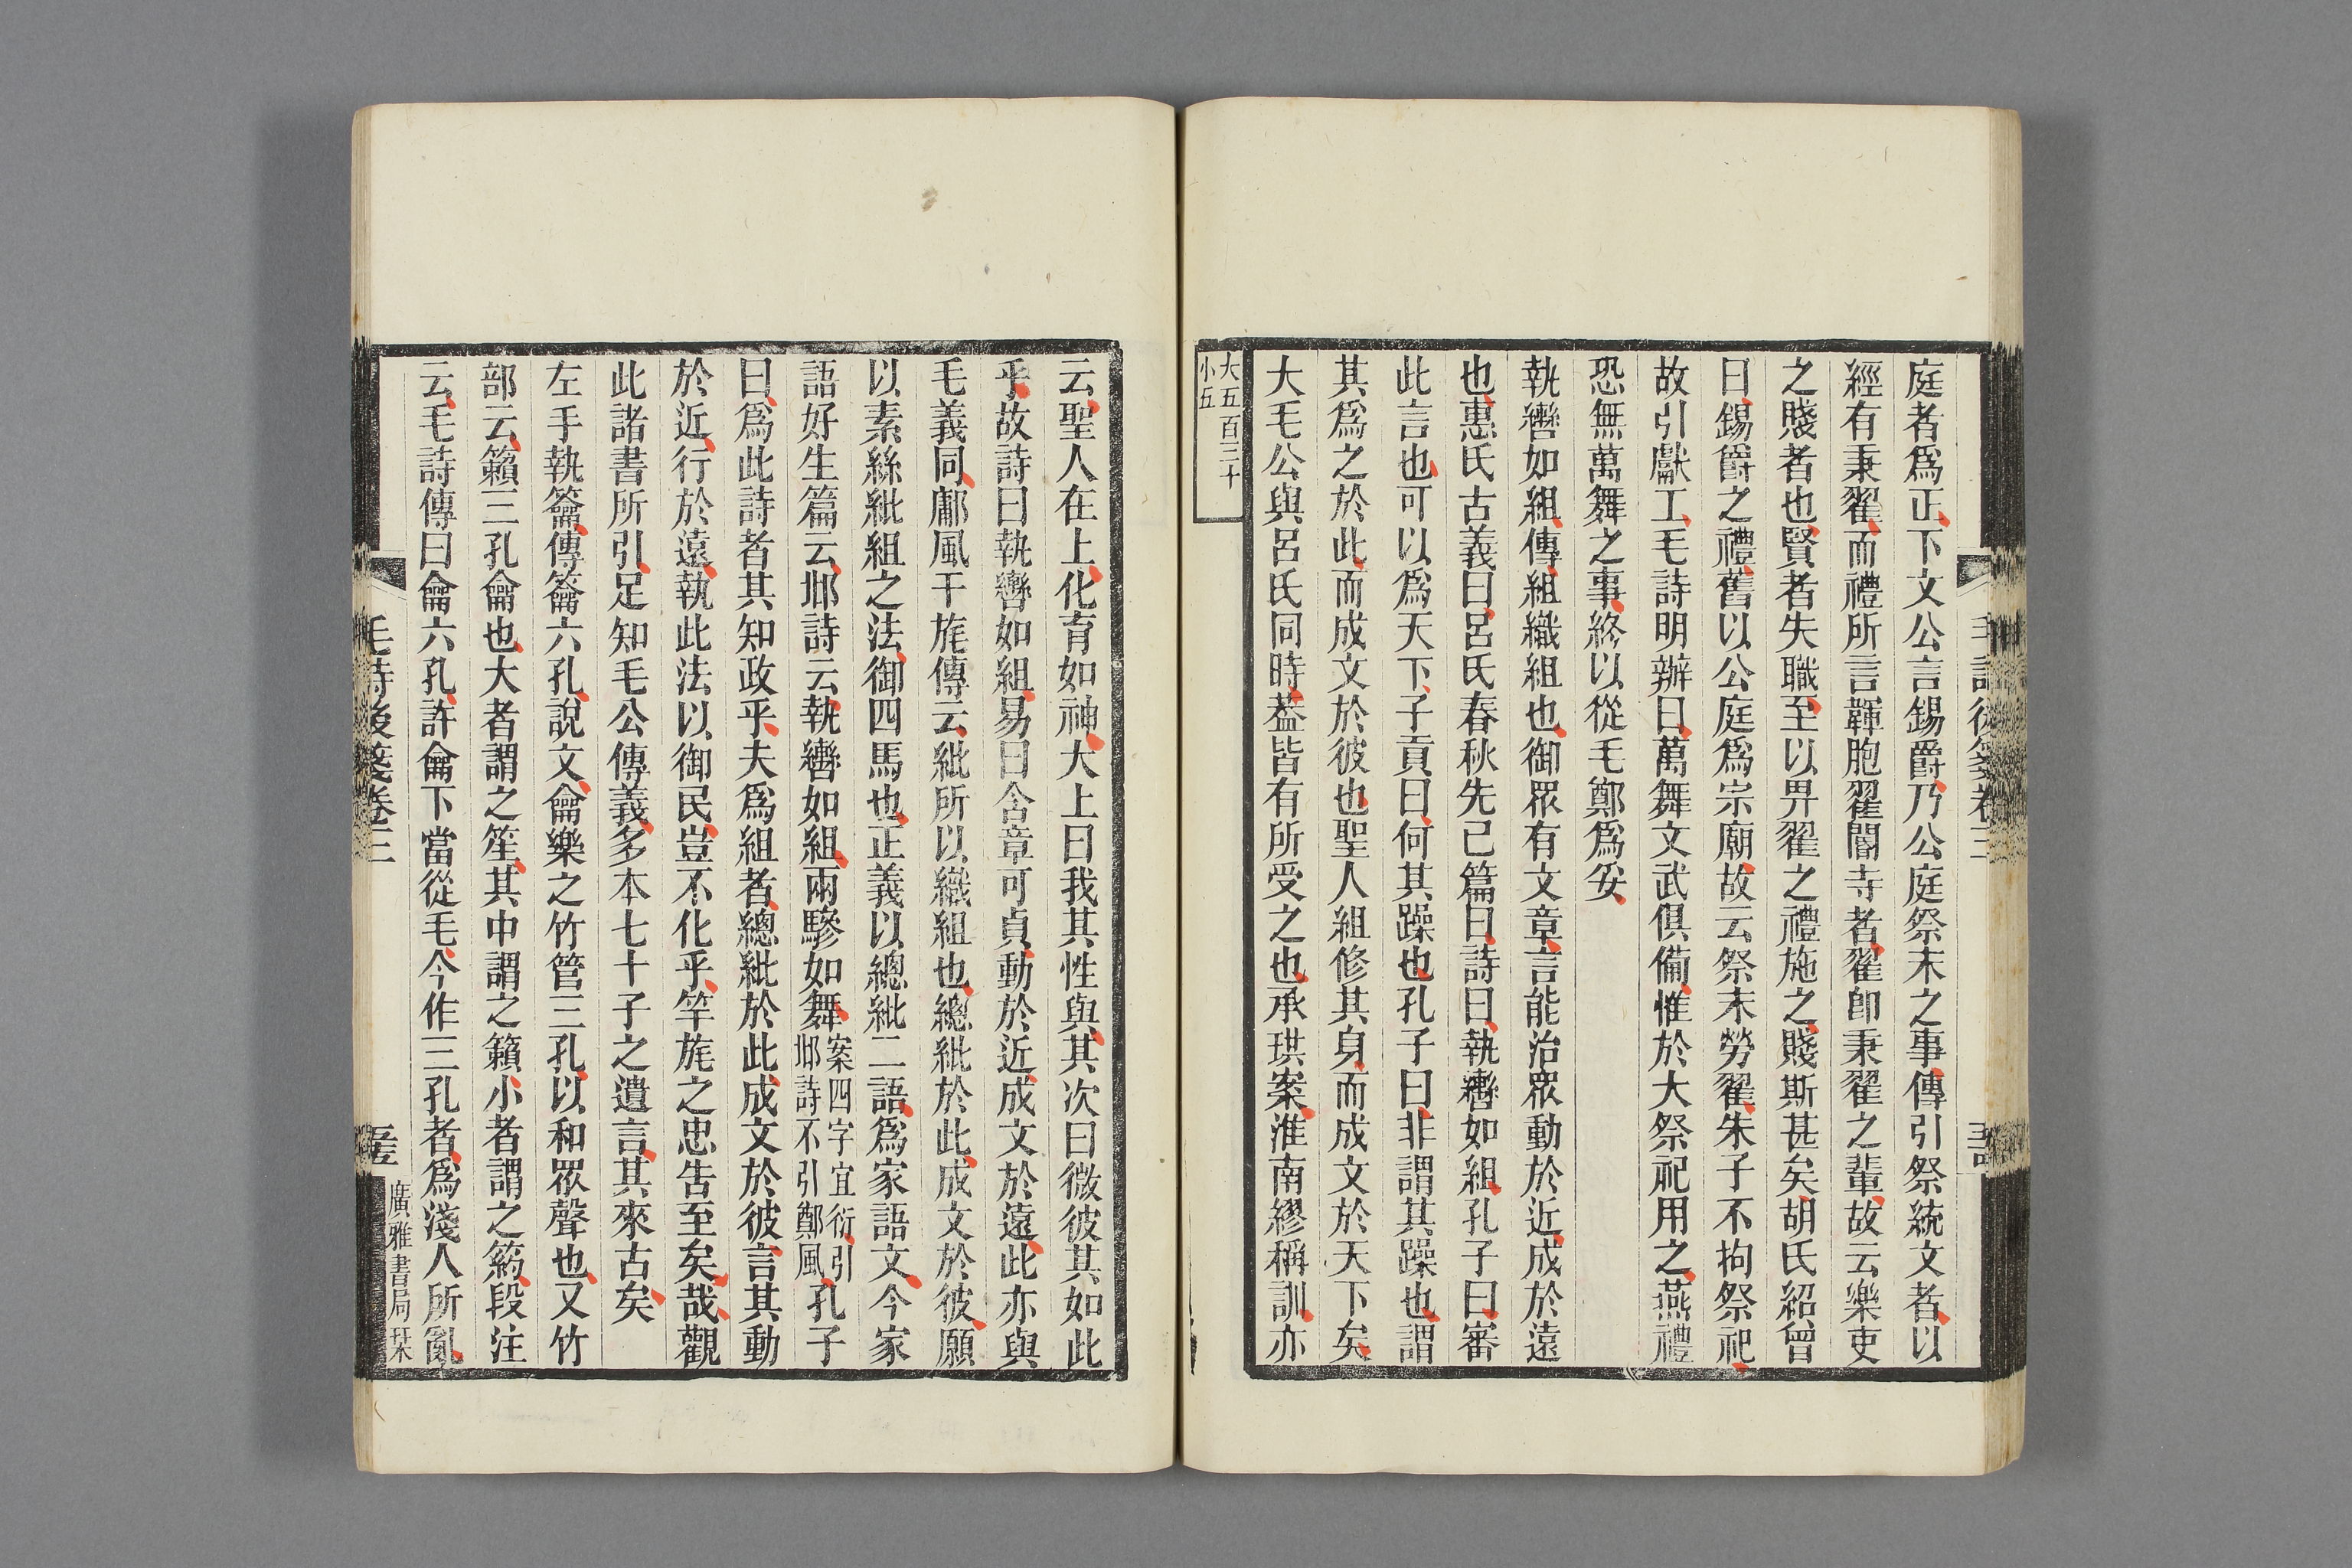 庭者爲正下文公言錫爵乃公庭祭末之事傳引祭統文者以
經有秉翟而禮所言韗胞翟閽寺者翟卽秉翟之輩故云樂吏
之賤者也賢者失職至以畀翟之禮施之賤斯甚矣胡氏紹曾
曰錫爵之禮舊以公庭爲宗廟故云祭末勞翟朱子不拘祭祀
故引獻工毛詩明辦曰萬舞文武俱備惟於大祭祀用之燕禮
恐無萬舞之事終以從毛鄭爲妥
執轡如組傳組織組也御眾有文章言能治眾動於近成於遠
也惠氏古義曰呂氏春秋先己篇曰詩曰執轡如組孔子曰審
此言也可以爲天下子貢曰何其躁也孔子曰非謂其躁也謂
其爲之於此而成文於彼也聖人組修其身而成文於天下矣
大毛公與呂氏同時葢皆有所受之也承珙案淮南繆稱訓亦
大五百三十
小五
云聖人在上化育如神大上曰我其性與其次曰微彼其如此
乎故詩曰執轡如組易曰含章可貞動於近成文於遠此亦與
毛義同鄘風干旄傳云紕所以織組也總紕於此成文於彼願
以素絲紕組之法御四馬也正義以總紕二語爲家語文今家
語好生篇云邶詩云執轡如組兩驂如舞案四字宜衍引
邶詩不引鄭風孔子
曰爲此詩者其知政乎夫爲組者總紕於此成文於彼言其動
於近行於遠執此法以御民豈不化乎竿旄之忠告至矣哉觀
此諸書所引足知毛公傳義多本七十子之遺言其來古矣
左手執籥傳籥六孔說文龠樂之竹管三孔以和眾聲也又竹
部云籟三孔龠也大者謂之笙其中謂之籟小者謂之箹段注
云毛詩傳曰龠六孔許龠下當從毛今作三孔者爲淺人所亂
毛詩後箋卷三
廣雅書局栞